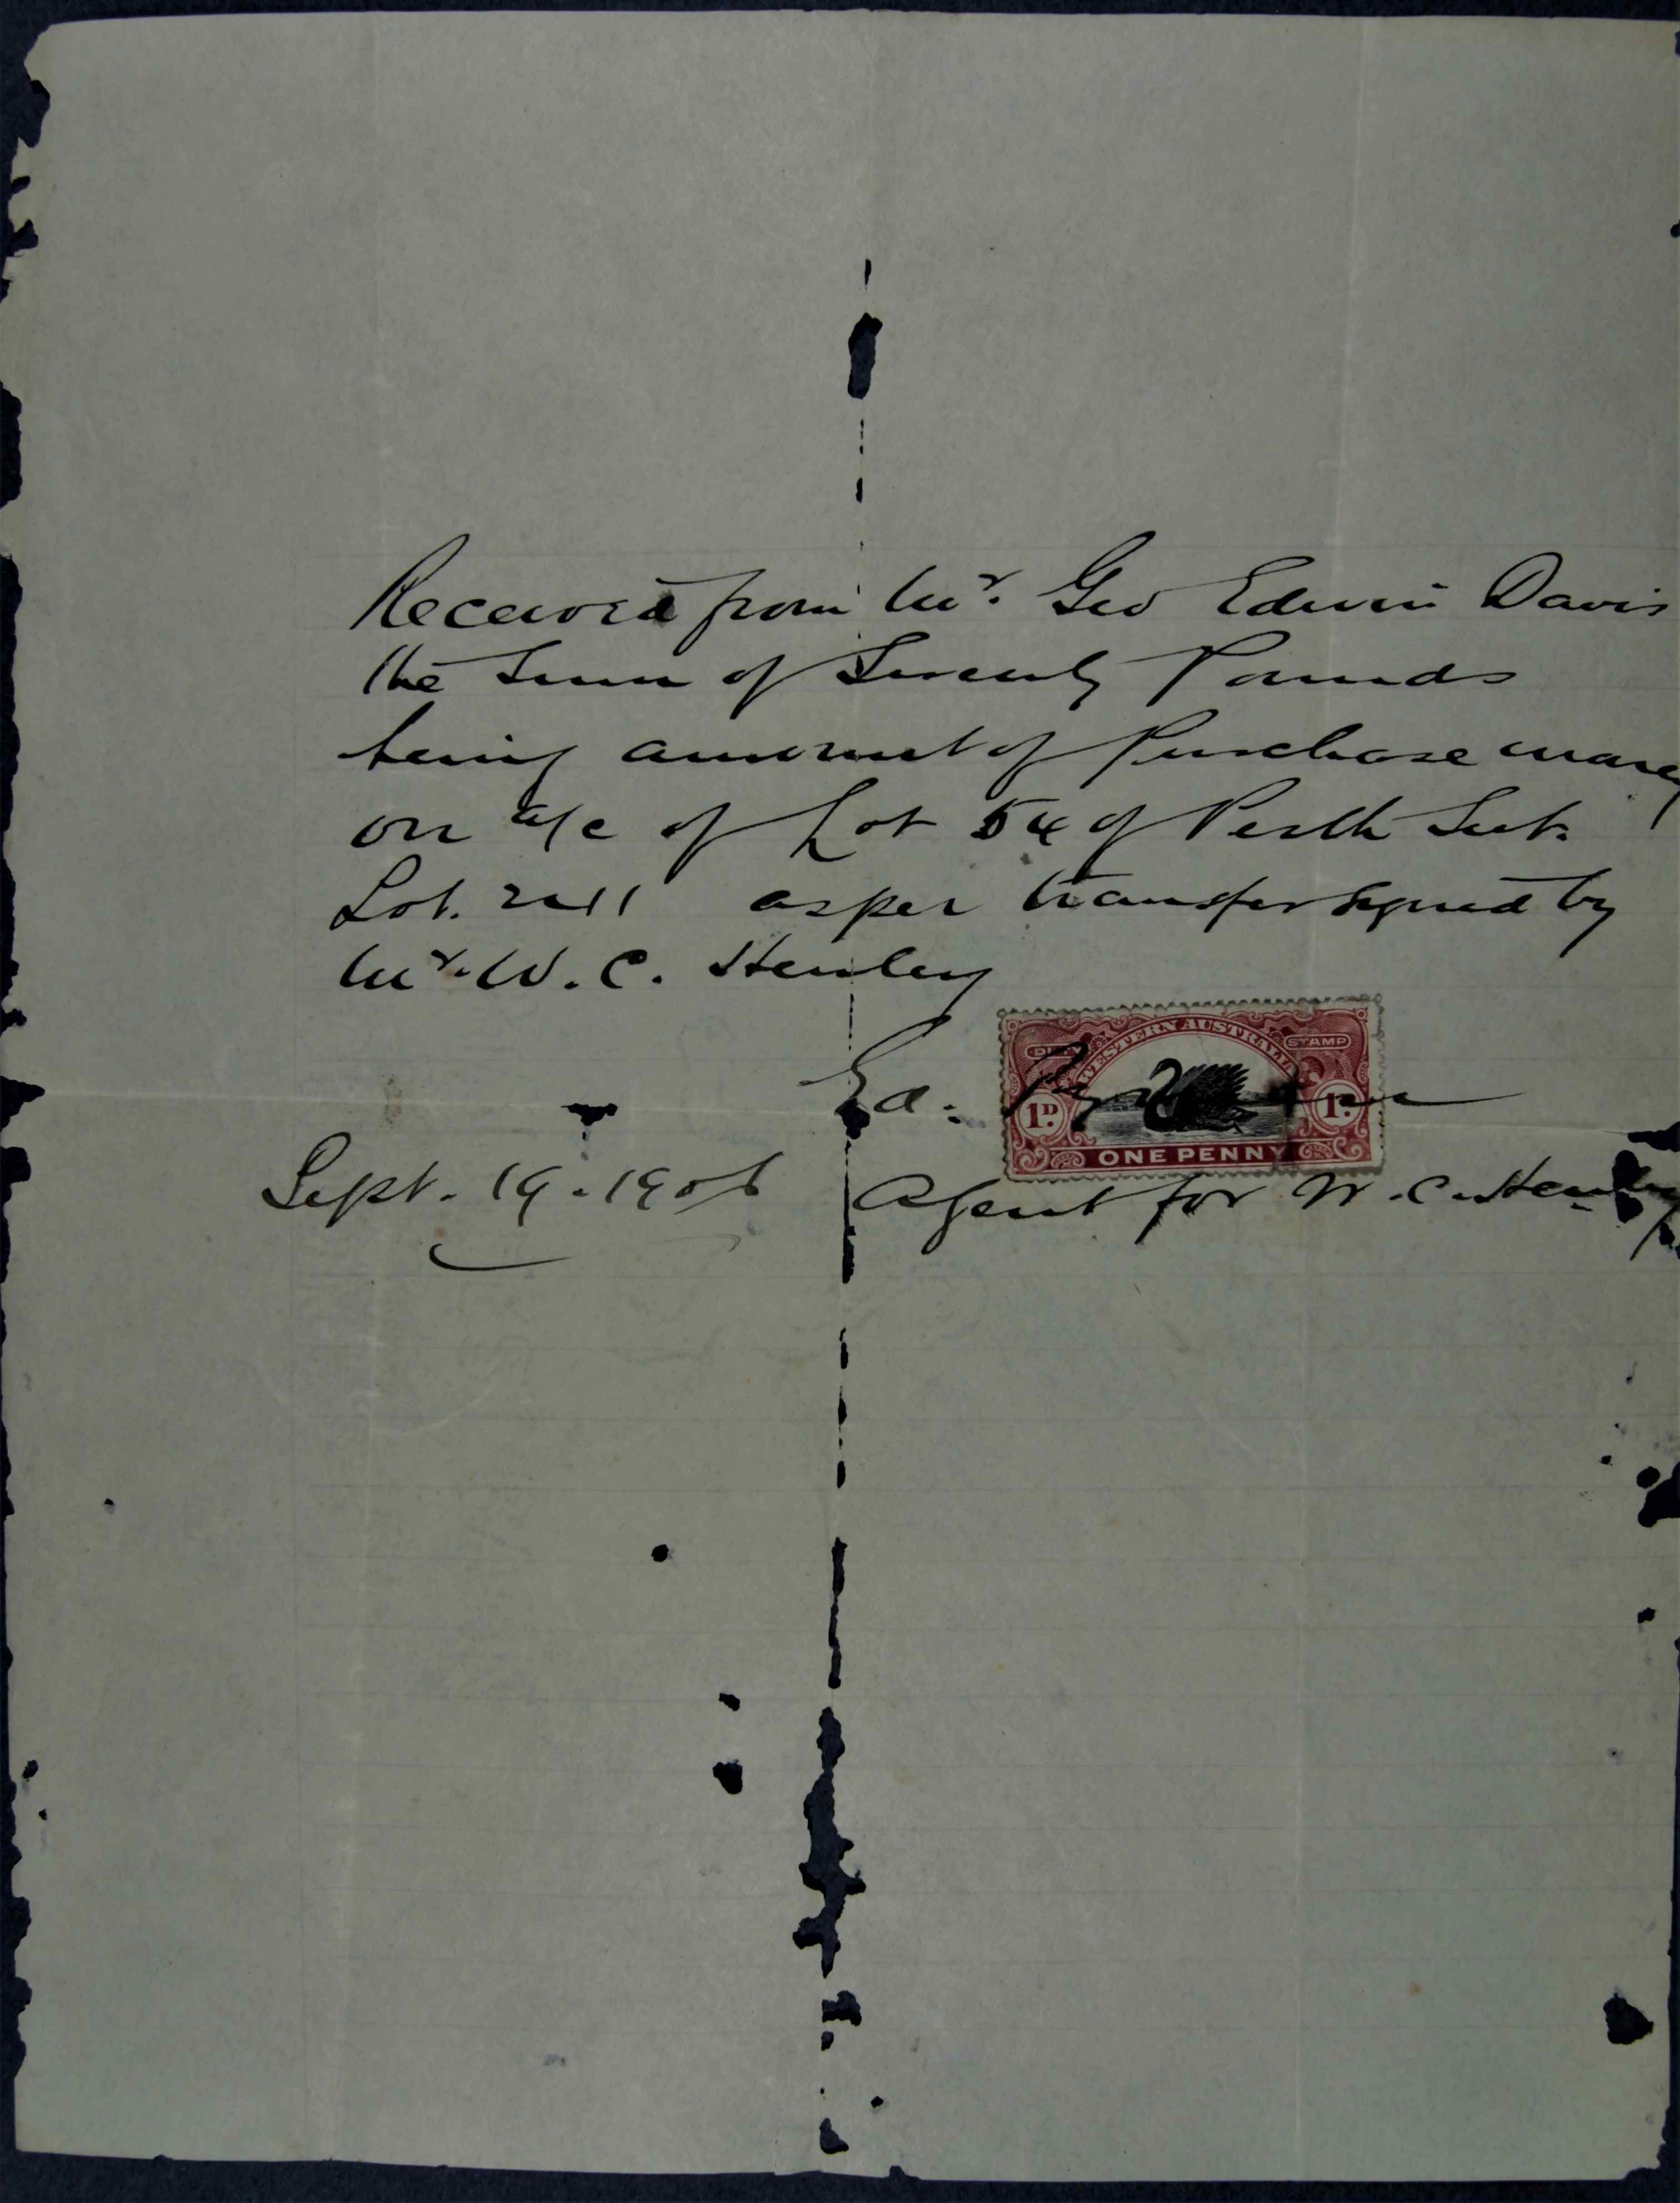 Received from Mr. Geo Edwin Davis
the Sum of Seventy Pounds
being amount of Purchase money
on a/c of Lot 54 of Perth Sub.
Lot. 2411 as per transfer signed by
Mr. W. C. Henley
WESTERN AUSTRALIA
DUTY STAMP
Ed.
1D. 1D.
ONE PENNY
Sept. 19. 1906 Agent for W. C. Henley